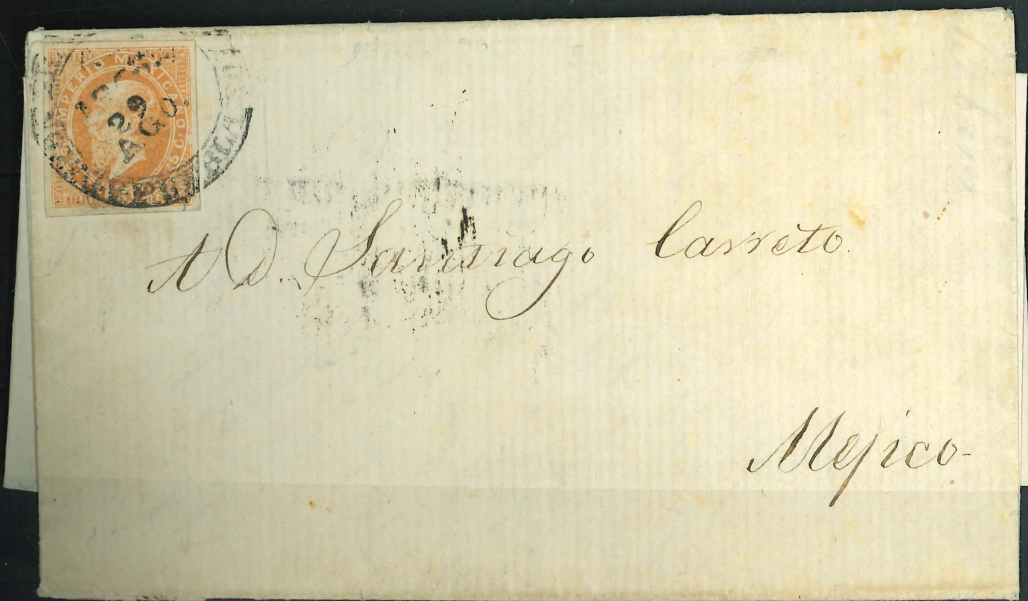 IMPERIO MEXICANO
25 C
29
AGO
PUEBLA
A D. Santiago Carreto.
Mejico-